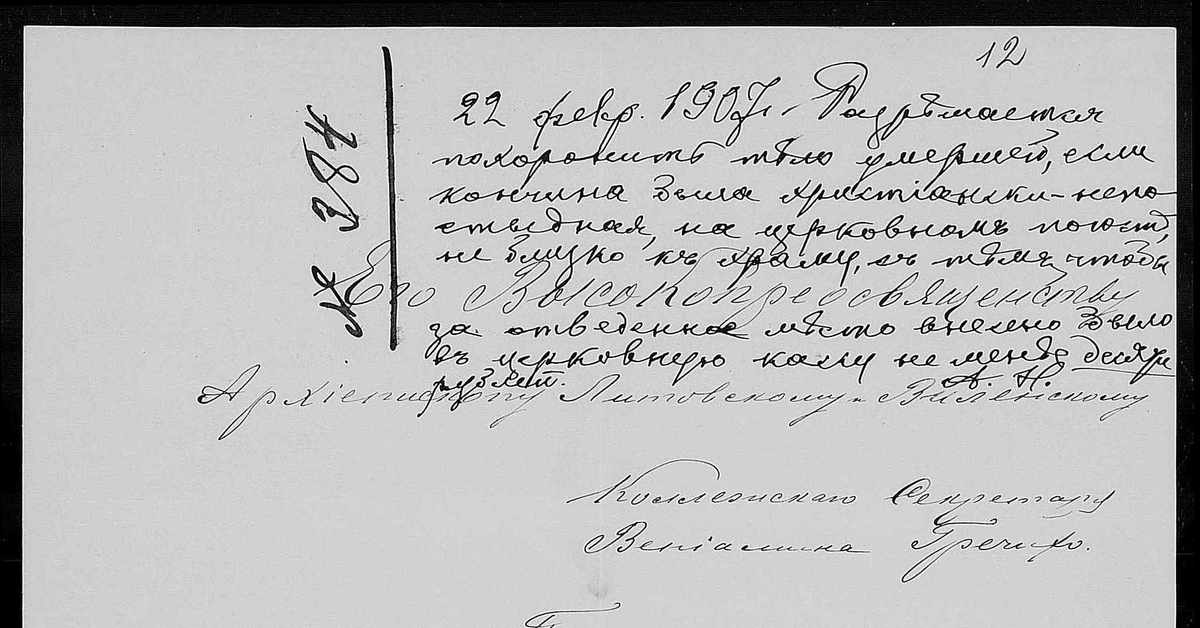 12
№ 384
22 февр. 1907 г. Разрѣшается
похоронить тѣло умершей, если
кончина была христіански-непо-
стыдная, на церковномъ погостѣ,
не близко къ храму, съ тѣмъ чтобы
Его Высокопреосвященству
за отведенное мѣсто внесено было
въ церковную казну не менѣе десяти
рублей. А. Н.
Архіепископу Литовскому и Виленскому
Коллежскаго Секретаря
Веніамина Гречихо.